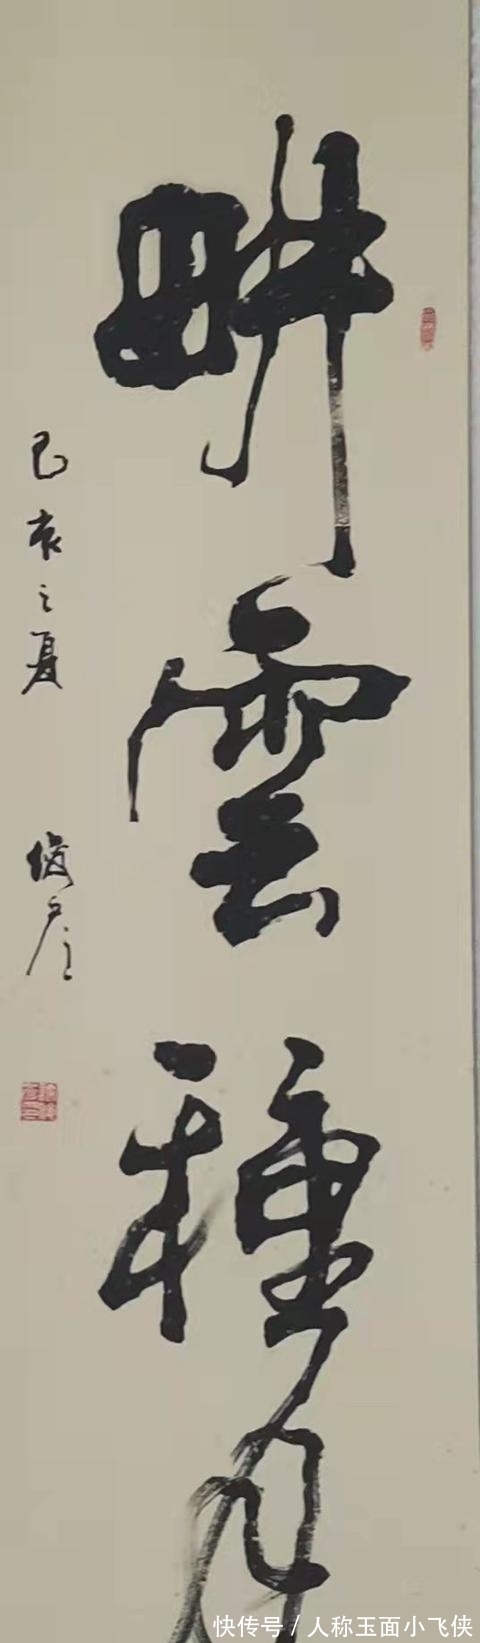 畊雲種月
己亥之夏
快传号 / 人称玉面小飞侠